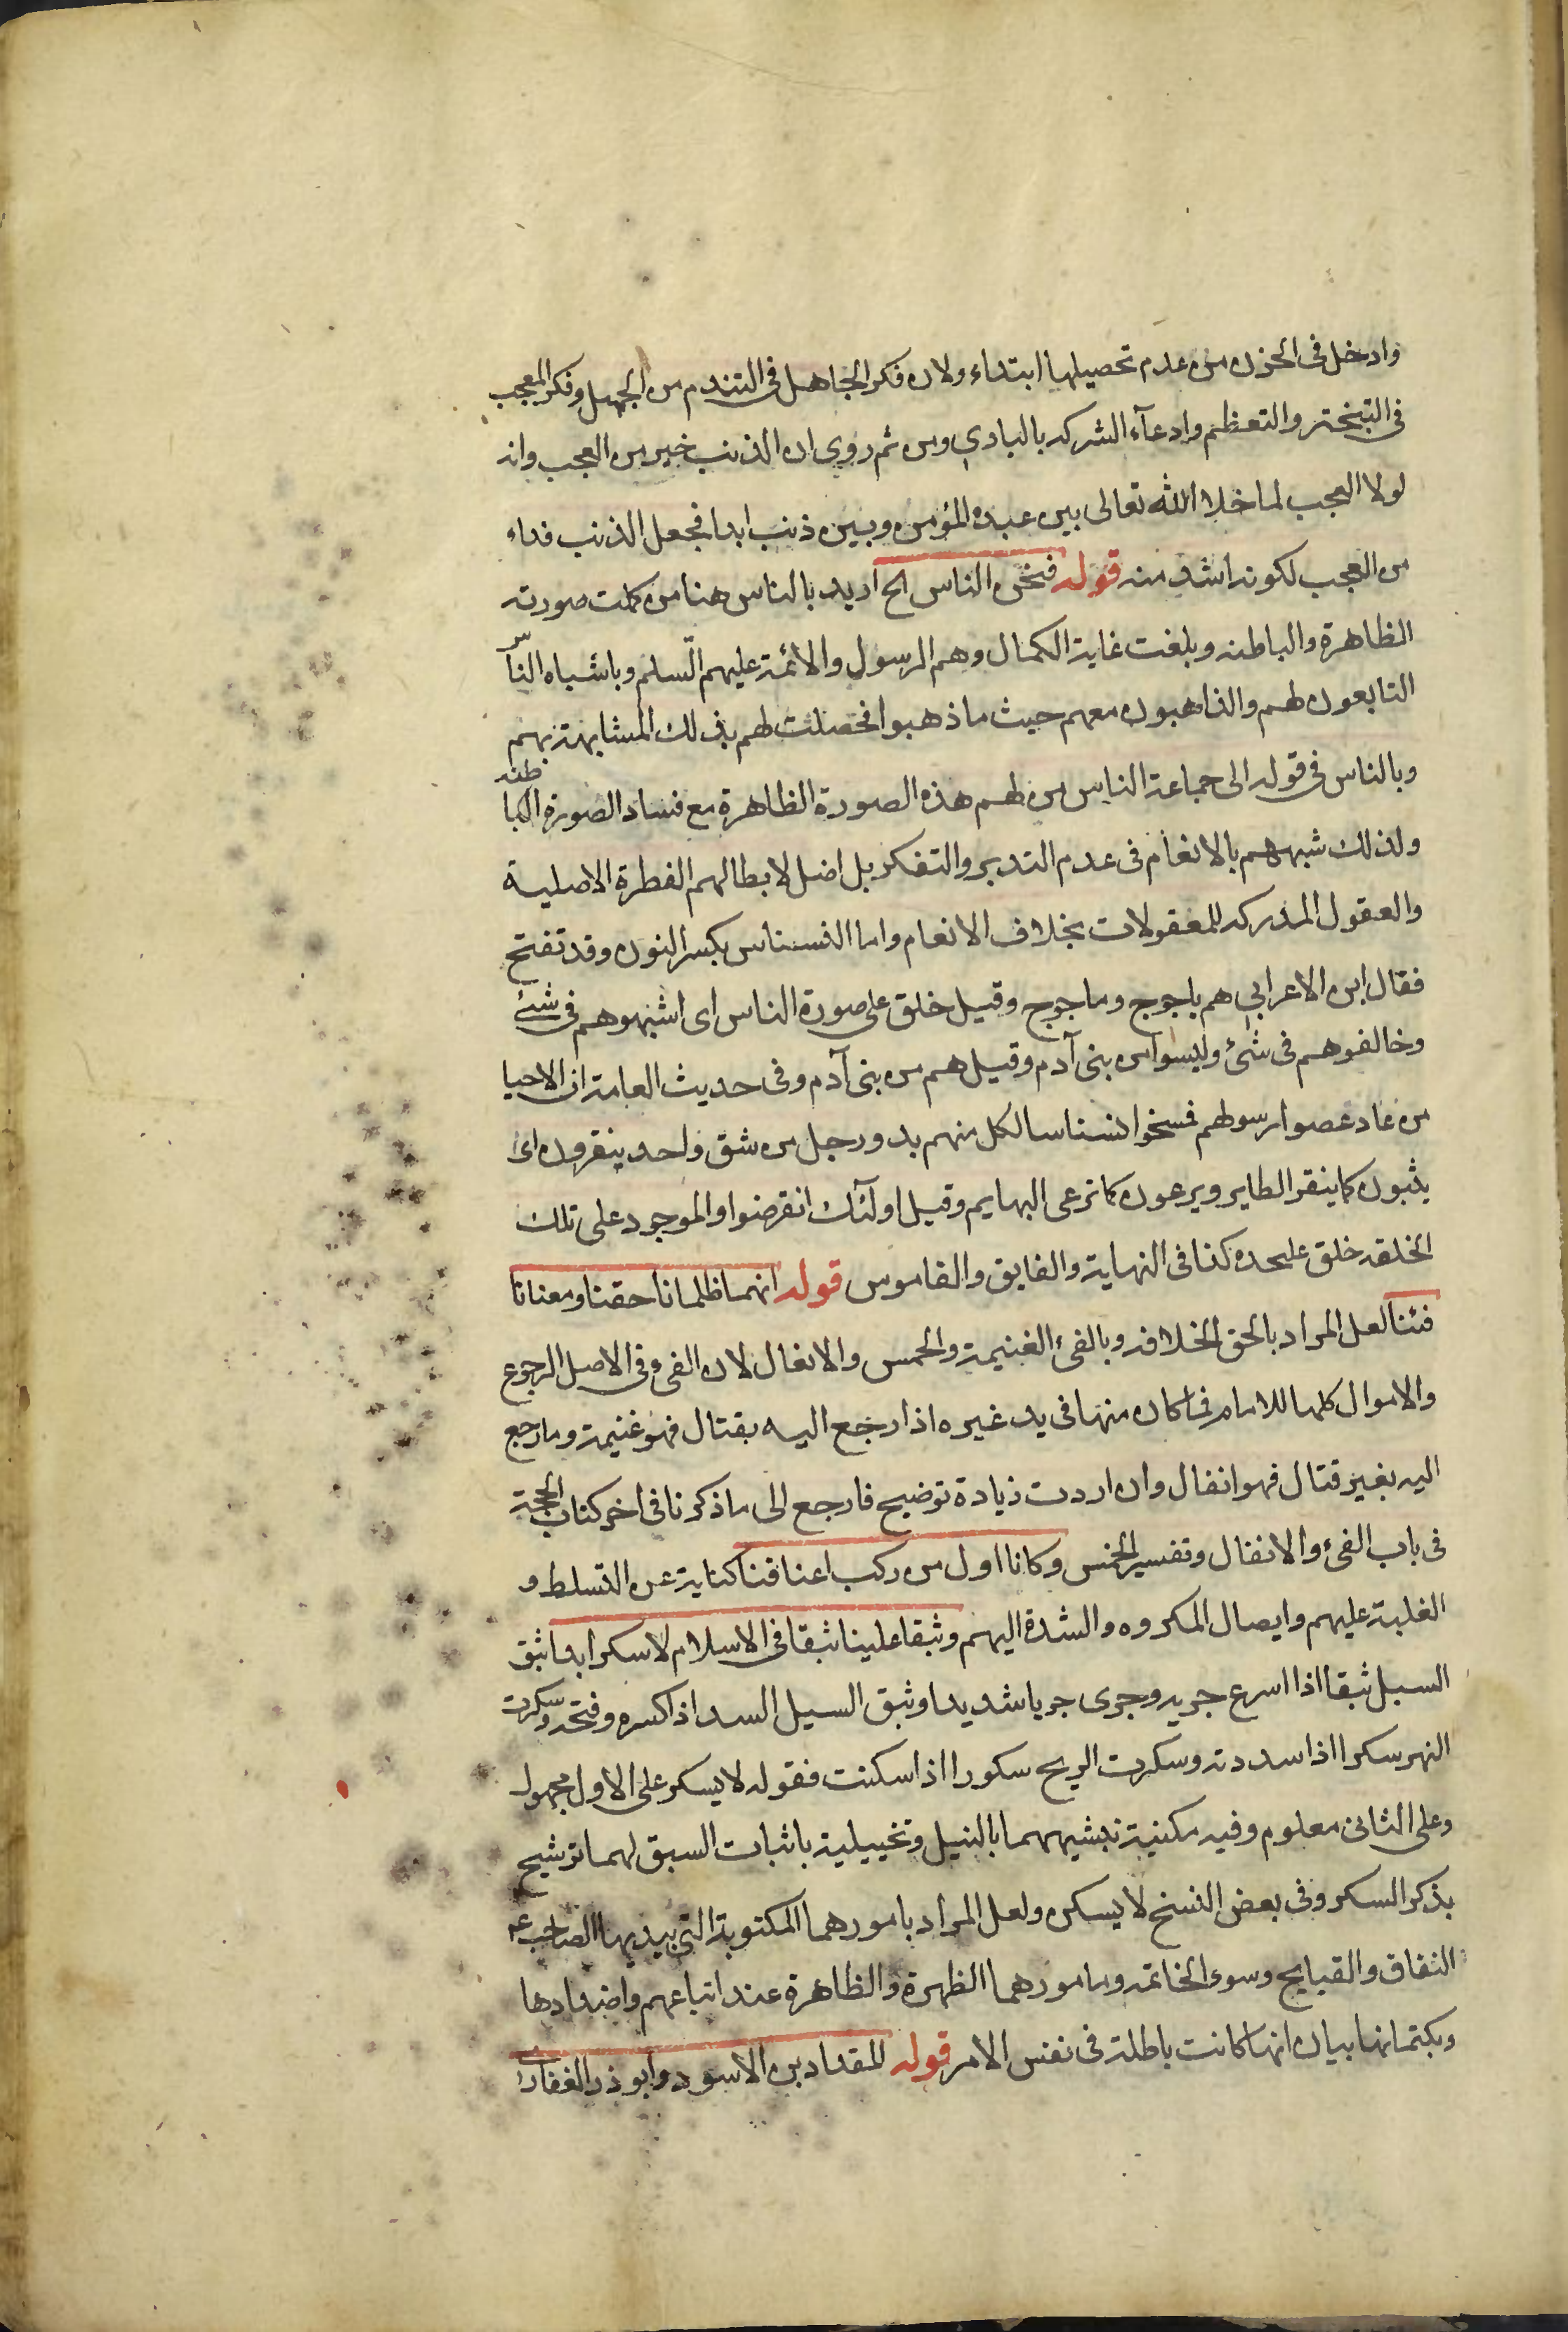 وادخل فى الحزن من عدم تحصيلها ابتداء ولان فكر الجاهل فى التندم من الجهل وفكر المعجب
فى التبختر والتعظم وادعآء الشركه بالبارى ومن ثم روى ان الذنب خير من العجب وانه
لولا العجب لما خلا الله تعالى بين عبده المؤمن وبين ذنب ابدا فجعل الذنب فداء
من العجب لكونه اشد منه قوله فنحن الناس الخ اريد بالناس هنا من كملت صورته
الظاهرة والباطنه وبلغت غاية الكمال وهم الرسول والائمة عليهم السّلم وباشباه الناس
التابعون لهم والذاهبون معهم حيث ما ذهبوا فحصلت لهم بذلك المشابهة بهم
وبالناس فى قوله الى جماعة الناس من لهم هذه الصورة الظاهرة مع فساد الصورة الباطنه
ولذلك شبههم بالانعام فى عدم التدبر والتفكر بل اضل لابطالهم الفطرة الاصلية
والعقول المدركه للمعقولات بخلاف الانعام واما النسناس بكسر النون وقد تفتح
فقال ابن الاعرابى هم ياجوج وماجوج وقيل خلق على صورة الناس اى اشبهوهم فى شىء
وخالفوهم فى شئ وليسوا من بنى آدم وقيل هم من بنى آدم وفى حديث العامة ان الاحيا
من عاد عصوا رسولهم فمسخوا نسناسا لكل منهم يد ورجل من شق واحد ينقرون اى
يثبون كما ينقر الطاير ويرعون كما ترعى البهايم وقيل اولئك انقرضوا والموجود على تلك
الخلقه خلق عليحده كذا فى النهاية والفايق والقاموس قوله انهما ظلمانا حقنا ومنعانا
فئنا لعل المراد بالحق الخلافه وبالفئ الغنيمة والخمس والانفال لان الفئ فى الاصل الرجوع
والاموال كلها للامام فما كان منها فى يد غيره اذا رجع اليه بقتال فهو غنيمة وما رجع
اليه بغير قتال فهو انفال وان اردت زيادة توضيح فارجع الى ما ذكرنا فى اخر كتاب الحجة
فى باب الفئ والانفال وتفسير الخمس وكانا اول من ركب اعناقنا كناية عن التسلط و
الغلبة عليهم وايصال المكروه والشدة اليهم وثبقا علينا ثبقا فى الاسلام لا يسكر ابدا ثبق
السيل ثبقا اذا اسرع جريه وجرى جريا شديدا وثبق السيل السد اذا كسره وفتحه وسكرت
النهر سكرا اذا سددته وسكرت الريح سكورا اذا سكنت فقوله لا يسكر على الاول مجهول
وعلى الثانى معلوم وفيه مكنية بتشبيههما بالسيل وتخييلية باثبات السبق لهما ترشيح
بذكر السكر وفى بعض النسخ لا يسكن ولعل المراد بامورهما المكتوبة التى يبديها الصاحب ع
النفاق والقبايح وسوء الخاتمه وبامورهما الظهرة والظاهرة عند اتباعهم واضدادها
وبكتمانها بيان انها كانت باطلة فى نفس الامر قوله للمقداد بن الاسود وابو ذر الغفارى